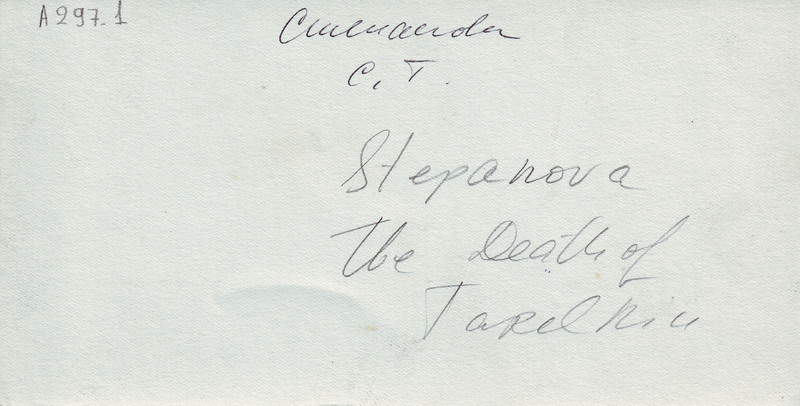 A297.1
Степанова
С, Т.
Stepanova
The Death of
Tarelkin